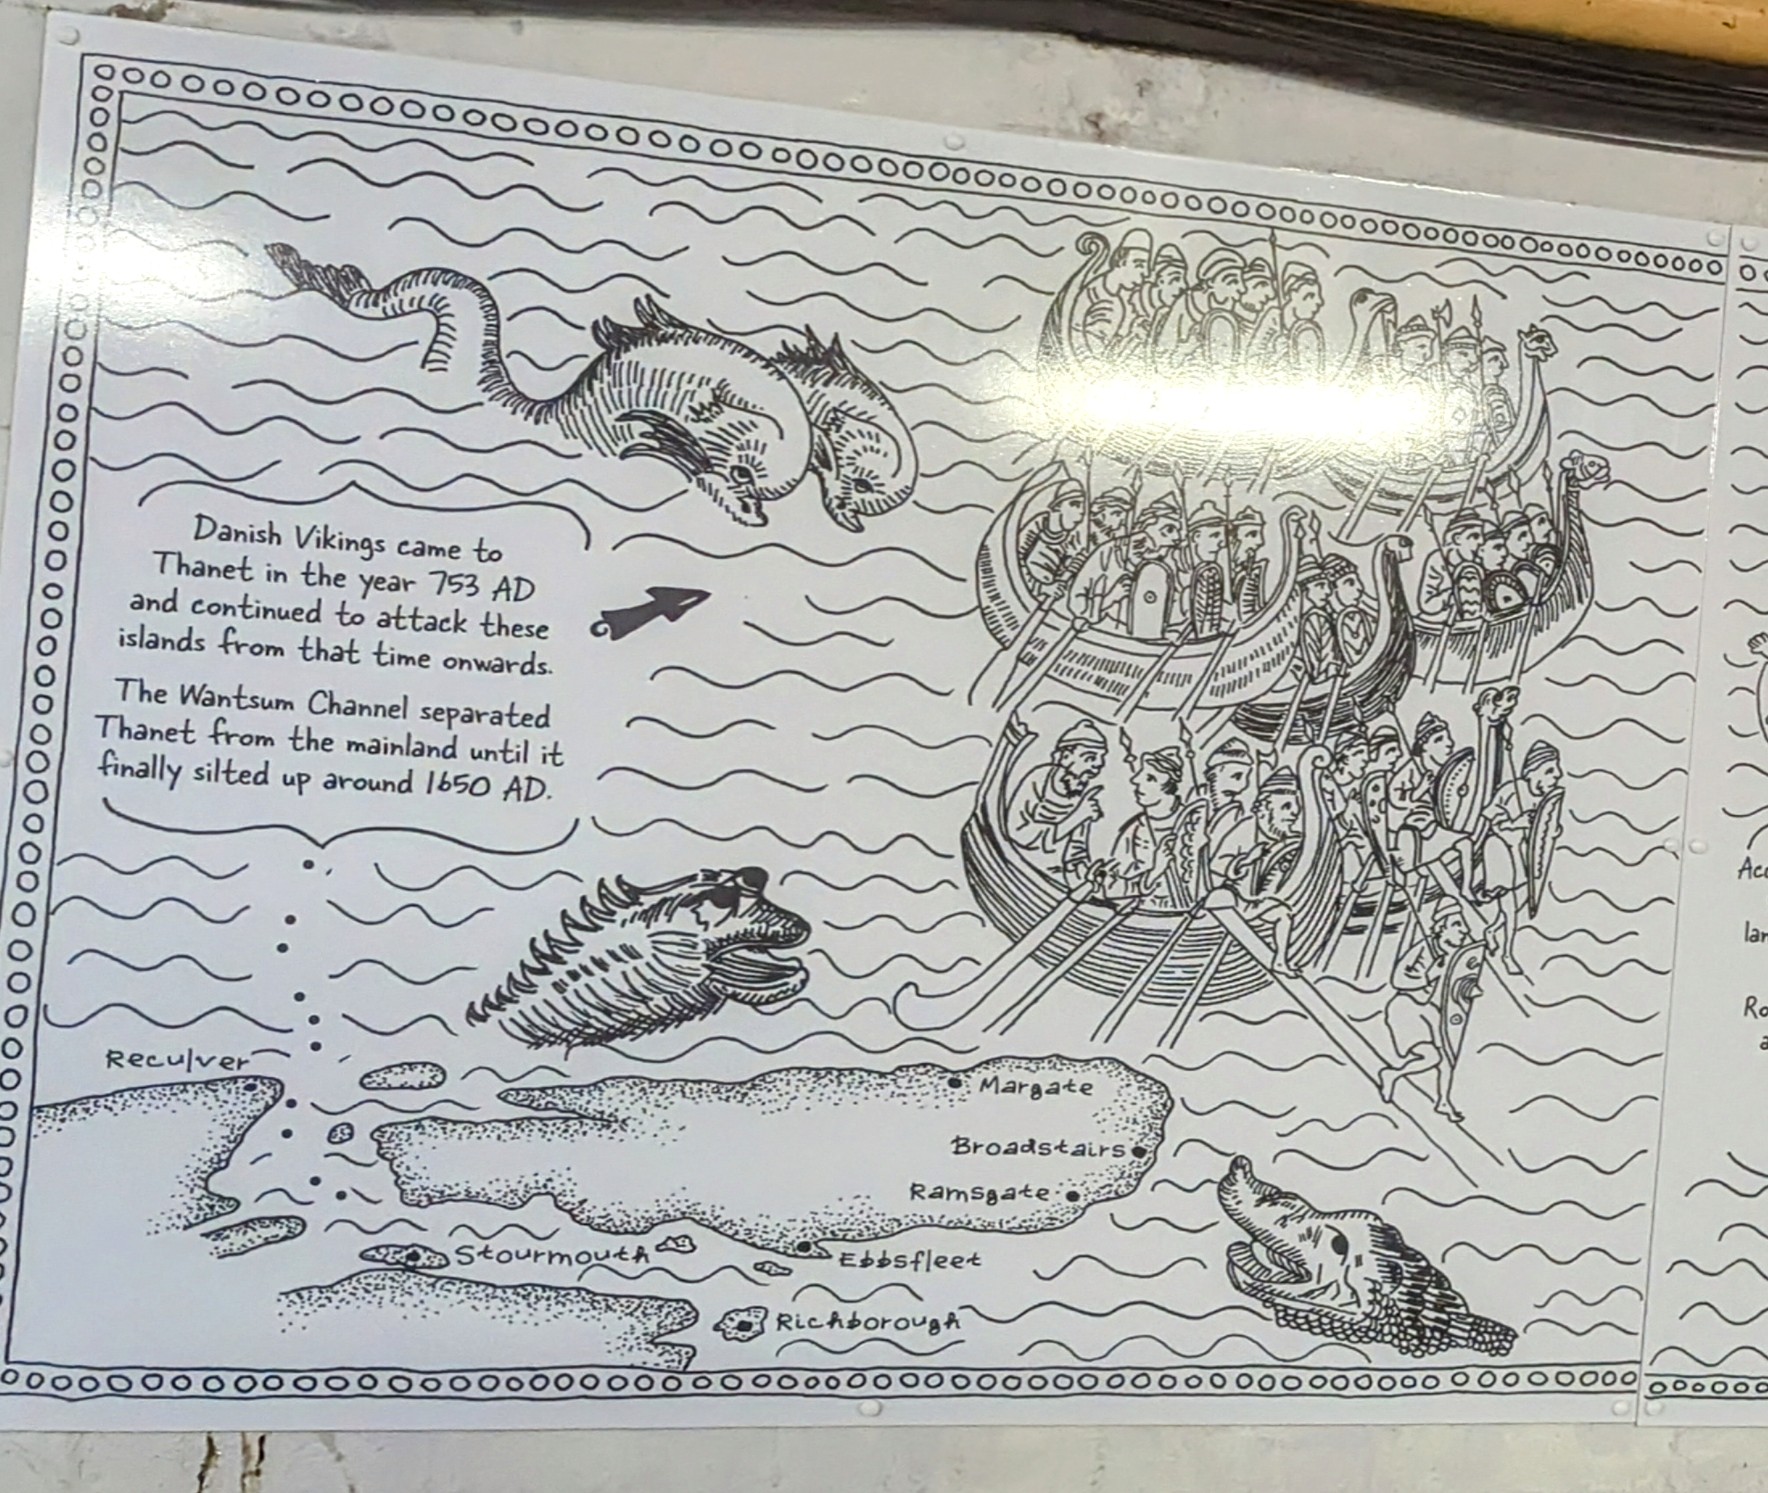 Danish Vikings came to
Thanet in the year 753 AD
and continued to attack these
islands from that time onwards.
The Wantsum Channel separated
Thanet from the mainland until it
finally silted up around 1650 AD.
Reculver
Margate
Broadstairs
Ramsgate
Stourmouth
Ebbsfleet
Richborough